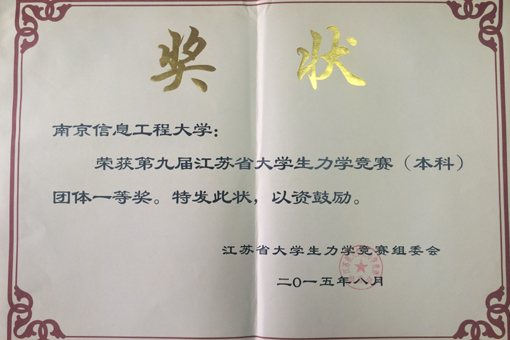 奖状
南京信息工程大学：
荣获第九届江苏省大学生力学竞赛（本科）
团体一等奖。特发此状，以资鼓励。
江苏省大学生力学竞赛组委会
二〇一五年八月